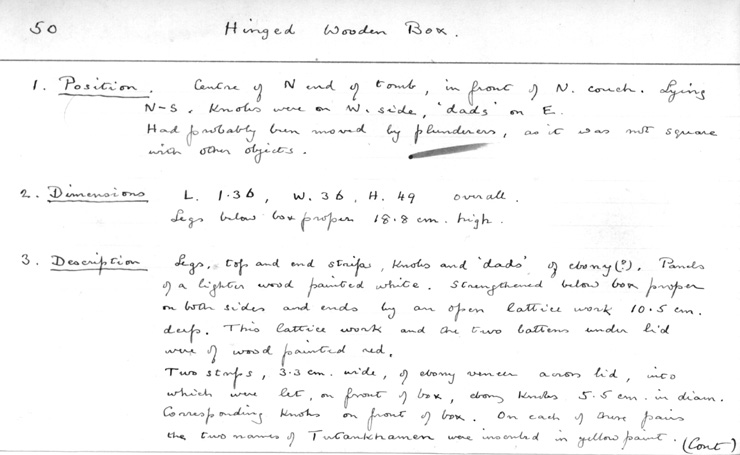 50 Hinged Wooden Box.
1. Position. Centre of N end of tomb, in front of N. couch. Lying
N-S. Knobs were on W. side, 'dads' on E.
Had probably been moved by plunderers, as it was not square
with other objects.
2. Dimensions L. 1.36, W. 36, H. 49 overall.
Legs below box proper 18.8 cm. high.
3. Description Legs, top and end strips, knobs and 'dads' of ebony(?). Panels
of a lighter wood painted white. Strengthened below box proper
on both sides and ends by an open lattice work 10.5 cm.
deep. This lattice work and the two battens under lid
were of wood painted red.
Two strips, 3.3 cm. wide, of ebony veneer across lid, into
which were let, on front of box, ebony knobs 5.5 cm. in diam.
Corresponding knobs on front of box. On each of these pairs
the two names of Tutankhamen were inserted in yellow paint. (Cont)